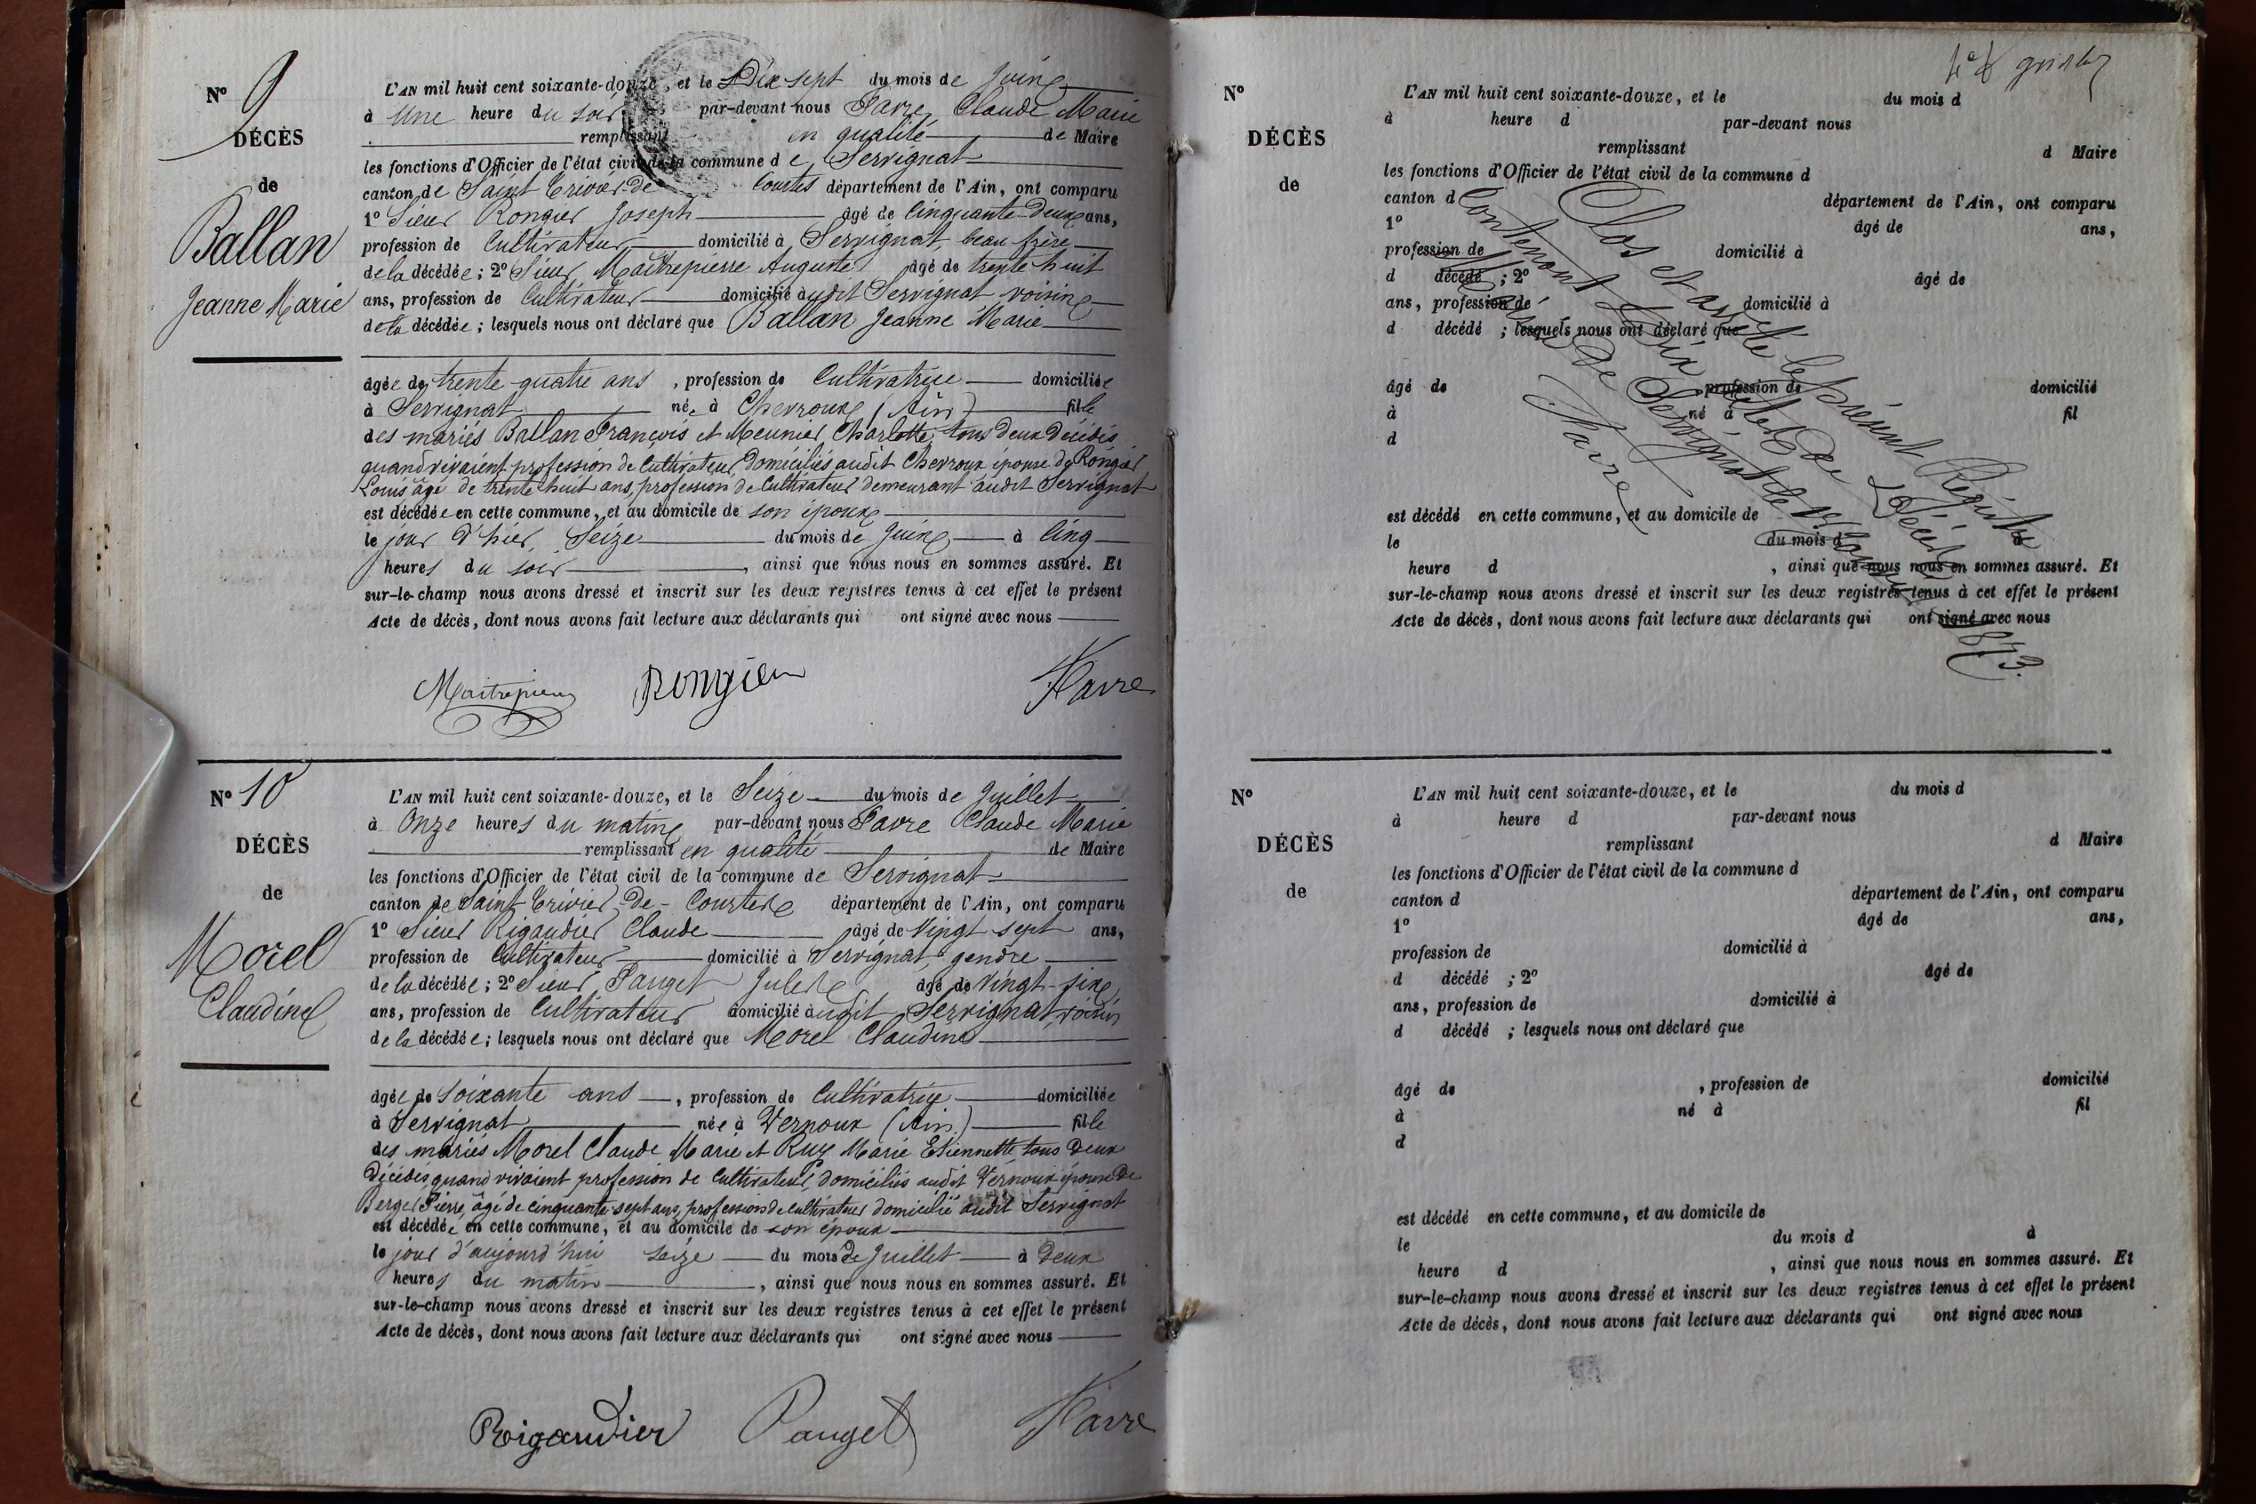 N° 9
DÉCÈS
de
Ballan
Jeanne Marie
L'AN mil huit cent soixante-douze, et le Dix sept du mois de Juin
à Une heure du soir par-devant nous Favre Claude Marie
remplissant en qualité de Maire
les fonctions d'Officier de l'état civil de la commune de Servignat
canton de Saint Trivier de Courtes département de l'Ain, ont comparu
1° Sieur Rongier Joseph âgé de Cinquante-Deux ans,
profession de Cultivateur domicilié à Servignat beau frère
de la décédée ; 2° Sieur Maîtrepierre Auguste âgé de trente huit
ans, profession de Cultivateur domicilié audit Servignat voisin
de la décédée ; lesquels nous ont déclaré que Ballan Jeanne Marie
âgée de trente quatre ans , profession de Cultivatrice domiciliée
à Servignat née à Chevroux (Ain) fille
des mariés Ballan François et Meunier Charlotte tous deux décédés
quand vivaient profession de Cultivateur Domiciliés audit Chevroux épouse de Rongier
Louis âgé de trente huit ans, profession de Cultivateur demeurant audit Servignat
est décédée en cette commune, et au domicile de son époux
le jour d'hier Seize du mois de Juin à Cinq
heures du soir , ainsi que nous nous en sommes assuré. Et
sur-le-champ nous avons dressé et inscrit sur les deux registres tenus à cet effet le présent
Acte de décès, dont nous avons fait lecture aux déclarants qui ont signé avec nous
Maitrepierre Rongier Favre
N° 10
DÉCÈS
de
Morel
Claudine
L'AN mil huit cent soixante-douze, et le Seize du mois de Juillet
à Onze heures du matin par-devant nous Favre Claude Marie
remplissant en qualité de Maire
les fonctions d'Officier de l'état civil de la commune de Servignat
canton de Saint Trivier-De-Courtes département de l'Ain, ont comparu
1° Sieur Rigaudier Claude âgé de Vingt sept ans,
profession de Cultivateur domicilié à Servignat gendre
de la décédée ; 2° Sieur Pauget Jules âgé de Vingt-six
ans, profession de Cultivateur domicilié audit Servignat voisin
de la décédée ; lesquels nous ont déclaré que Morel Claudine
âgée de Soixante ans , profession de Cultivatrice domiciliée
à Servignat née à Vernoux (Ain) fille
des mariés Morel Claude Marie et Ruy Marie Etiennette tous deux
Décédés quand vivaient profession de Cultivateur, domiciliés audit Vernoux épouse De
Berger Pierre âgé de cinquante-sept ans, profession De cultivateur domicilié audit Servignat
est décédée en cette commune, et au domicile de son époux
le jour d'aujourd'hui seize du mois de Juillet à Deux
heures du matin , ainsi que nous nous en sommes assuré. Et
sur-le-champ nous avons dressé et inscrit sur les deux registres tenus à cet effet le présent
Acte de décès, dont nous avons fait lecture aux déclarants qui ont signé avec nous
Rigaudier Pauget Favre
N°
DÉCÈS
de
L'AN mil huit cent soixante-douze, et le du mois d
à heure d par-devant nous
remplissant d Maire
les fonctions d'Officier de l'état civil de la commune d
canton d département de l'Ain, ont comparu
1° âgé de ans,
profession de domicilié à
d décédé ; 2° âgé de
ans, profession de domicilié à
d décédé ; lesquels nous ont déclaré que
âgé de , profession de domicilié
à né à fil
d
est décédé en cette commune, et au domicile de
le du mois d à
heure d , ainsi que nous nous en sommes assuré. Et
sur-le-champ nous avons dressé et inscrit sur les deux registres tenus à cet effet le présent
Acte de décès, dont nous avons fait lecture aux déclarants qui ont signé avec nous
Clos et arrêté le présent Registre
Contenant Dix actes De Décès
Mairie De Servignat le 1er Janvier 1873.
Favre
N°
DÉCÈS
de
L'AN mil huit cent soixante-douze, et le du mois d
à heure d par-devant nous
remplissant d Maire
les fonctions d'Officier de l'état civil de la commune d
canton d département de l'Ain, ont comparu
1° âgé de ans,
profession de domicilié à
d décédé ; 2° âgé de
ans, profession de domicilié à
d décédé ; lesquels nous ont déclaré que
âgé de , profession de domicilié
à né à fil
d
est décédé en cette commune, et au domicile de
le du mois d à
heure d , ainsi que nous nous en sommes assuré. Et
sur-le-champ nous avons dressé et inscrit sur les deux registres tenus à cet effet le présent
Acte de décès, dont nous avons fait lecture aux déclarants qui ont signé avec nous